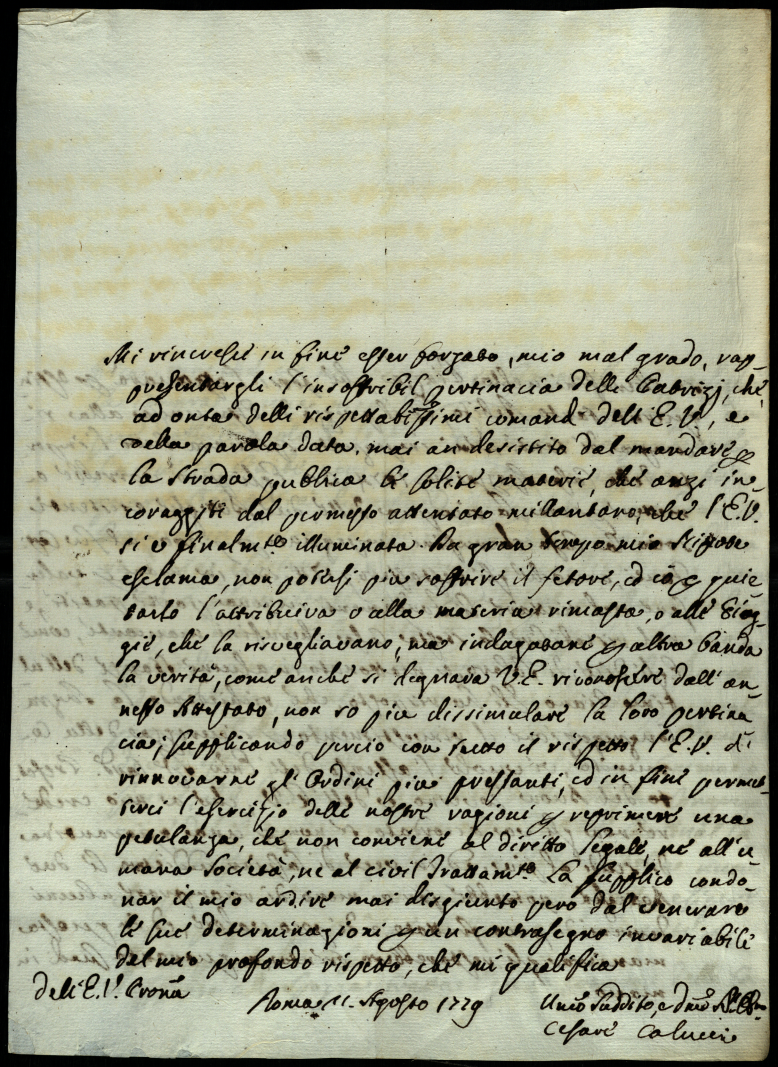 Mi rincresce in fine esser forzato, mio mal grado, rap-
presentargli l'insoffribil pertinacia delli Patrizj, che,
ad onta delli rispettabilissimi comandi dell'E. V., e
della parola data, mai an desistito dal mandare p
la strada publica le solite materie, che anzi in-
coraggiti dal permesso attentato millantano, che l'E.V.
si e finalmte illuminata. Da gran tempo mio Nipote
esclama, non potersi piu soffrire il fetore, ed io p quie-
tarlo l'attribuiva o alla materia rimasta, o alle Piog-
gie, che la risvegliavano; ma indagatane p altra banda
la verità, come anche si degnava V.E. riconoscere dall'an-
nesso Attestato, non so piu dissimulare la loro pertina
cia; supplicando percio con tutto il rispetto l'E.V. di
rinnovarne gl'Ordini piu pressanti, ed in fine permet-
terci l'esercizio delle nostre ragioni p reprimere una
petulanza, che non conviene al diritto legale, ne all'u-
mana Società, ne al civil Trattamto. La supplico condo-
nar il mio ardire mai disgiunto pero dal venerare
le sue determinazioni p un contrasegno invariabile
del mio profondo rispetto, che mi qualifica
dell'E.V. Prona
Roma 11. Agosto 1779 Umo Suddito, e Dmo
Cesare Colucci